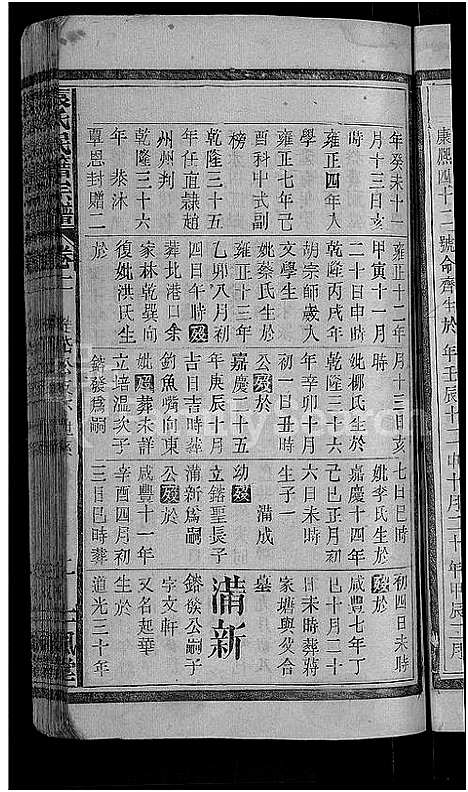 康熙四十二
號命齊生於
年壬辰十二
年甲辰二月
年癸未十一
月十三日亥
時
雍正四年入
學
雍正七年己
酉科中式副
榜
乾隆三十五
年任直隸趙
州州判
乾隆三十六
年 恭沐
覃恩封贈二
雍正十二年
甲寅十一月
二十日申時
乾隆丙戌年
胡宗師歲入
文學生
妣蔡氏生於
雍正十三年
乙卯八月初
四日午時歿
葬北港口余
家林乾巽向
復妣洪氏生
於
月十三日亥
時
妣柳氏生於
乾隆三十六
年辛卯十月
初一日丑時
公歿於
嘉慶二十五
年庚辰十月
吉日吉時葬
釣魚嘴向東
妣歿葬未詳
立培溫次子
鍇發爲嗣
七日巳時
妣李氏生於
嘉慶十四年
己巳正月初
六日未時
生子一
滿成
幼歿
立鍇聖長子
滿新爲嗣
公歿於
咸豐十一年
辛酉四月初
三日巳時葬
初四日未時
歿於
咸豐七年丁
巳十月二十
日未時葬蔣
家塘與父合
墓
滿新
鍇族公嗣子
字文軒
又名起華
生於
道光三十年